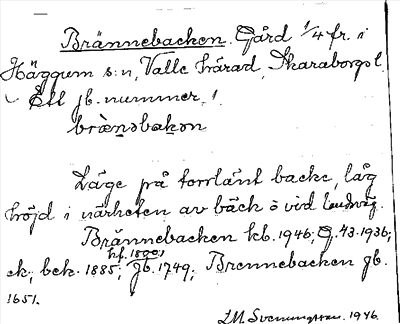 Brännebacken. Gård 1/4 fr. i
Häggum s:n, Valle härad, Skaraborgs l.
Ett jb. nummer, 1.
brænəbakən
Läge på torrlänt backe, låg
höjd i närheten av bäck ö vid landsväg.
Brännebacken kb. 1946; G. 43. 1936;
hf. 1890;
ek; bek. 1885; Jb. 1749; Brennebacken jb.
1651.
LM Svenungsson. 1946.